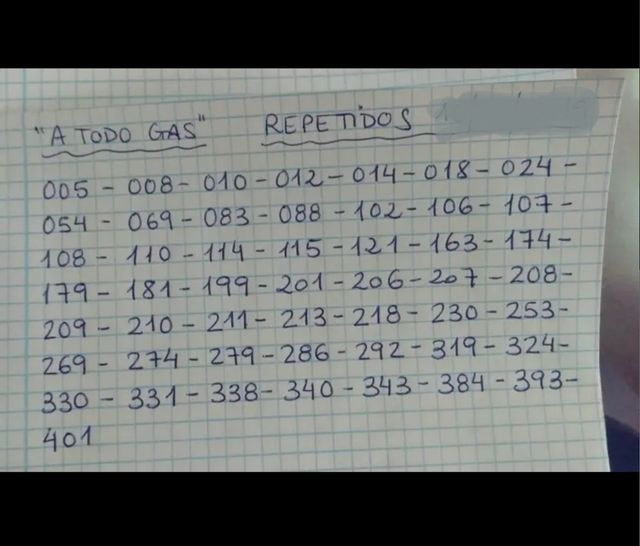 "A TODO GAS" REPETIDOS
005 - 008 - 010 - 012 - 014 - 018 - 024 -
054 - 069 - 083 - 088 - 102 - 106 - 107 -
108 - 110 - 114 - 115 - 121 - 163 - 174 -
179 - 181 - 199 - 201 - 206 - 207 - 208 -
209 - 210 - 211 - 213 - 218 - 230 - 253 -
269 - 274 - 279 - 286 - 292 - 319 - 324 -
330 - 331 - 338 - 340 - 343 - 384 - 393 -
401